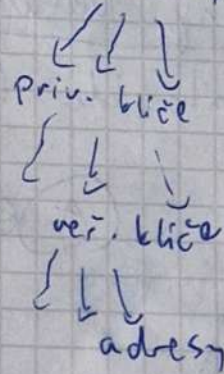 priv. klíče
veř. klíče
adresy